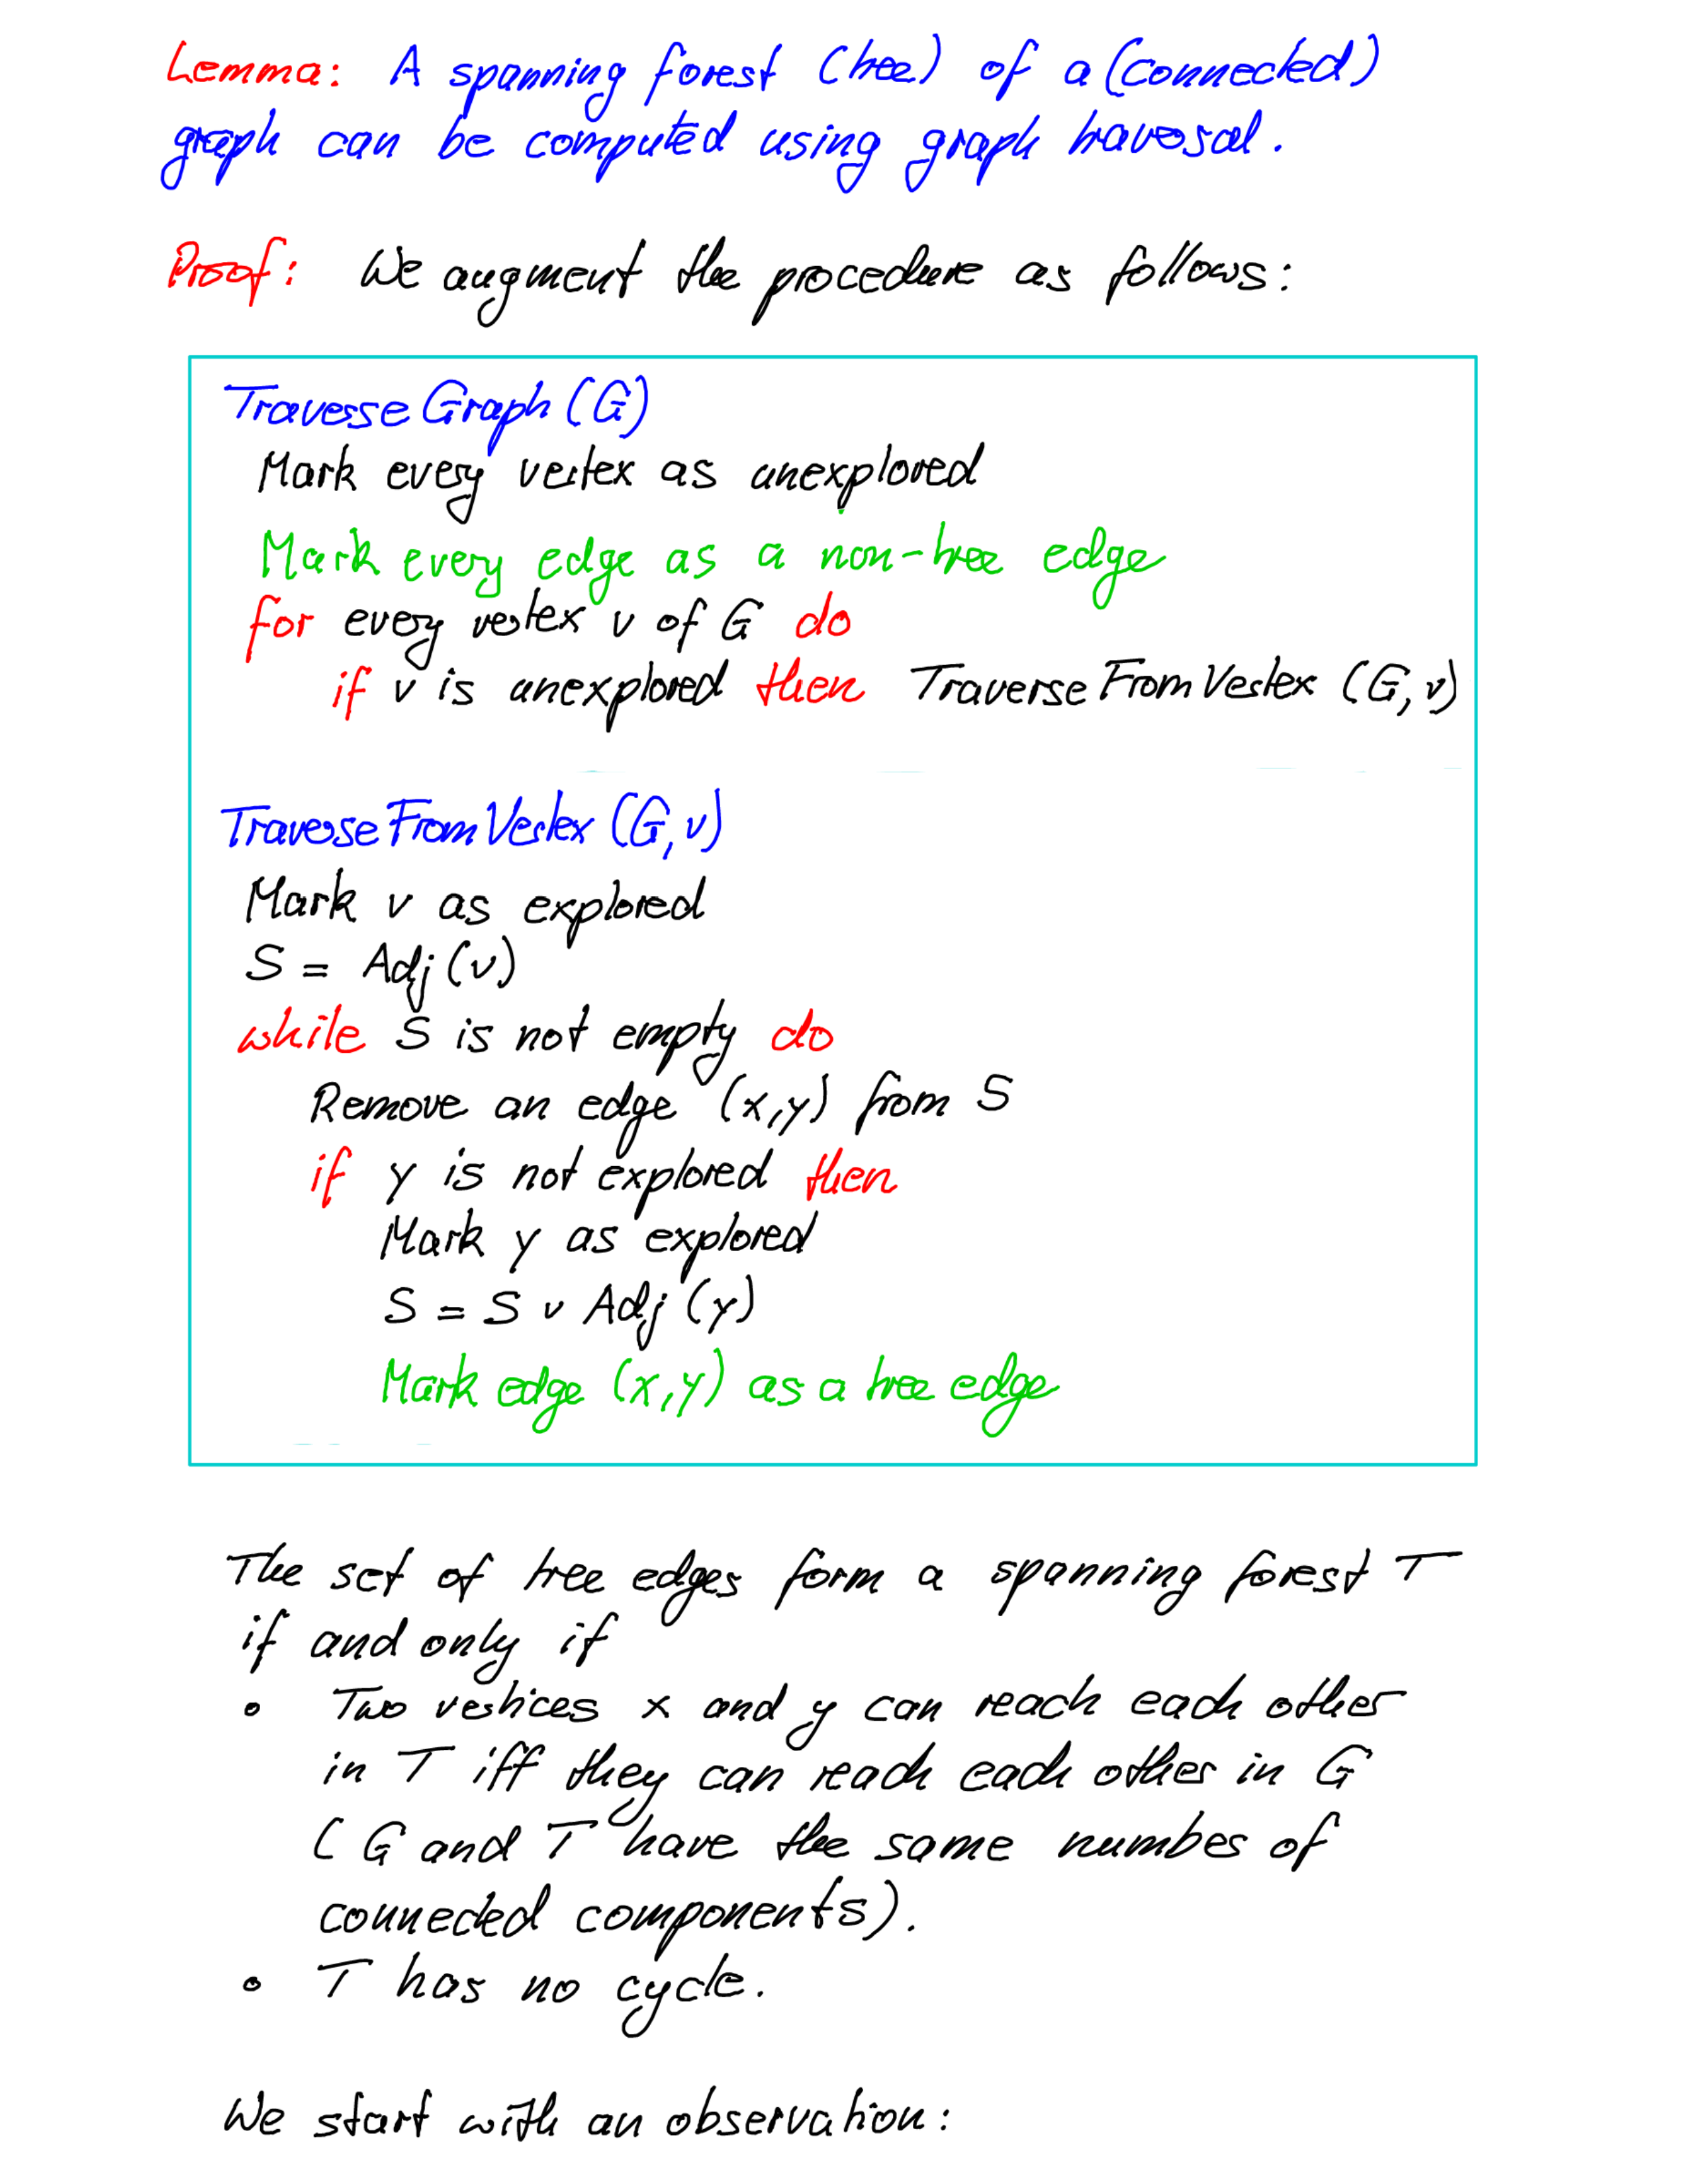 Lemma: A spanning forest (tree) of a (connected)
graph can be computed using graph traversal.
Proof: We augment the procedure as follows:
TraverseGraph (G)
Mark every vertex as unexplored
Mark every edge as a non-tree edge
for every vertex v of G do
if v is unexplored then TraverseFromVertex (G, v)
TraverseFromVertex (G, v)
Mark v as explored
S = Adj (v)
while S is not empty do
Remove an edge (x, y) from S
if y is not explored then
Mark y as explored
S = S ∪ Adj (y)
Mark edge (x, y) as a tree edge
The set of tree edges form a spanning forest T
if and only if
• Two vertices x and y can reach each other
in T iff they can reach each other in G
(G and T have the same number of
connected components).
• T has no cycle.
We start with an observation: